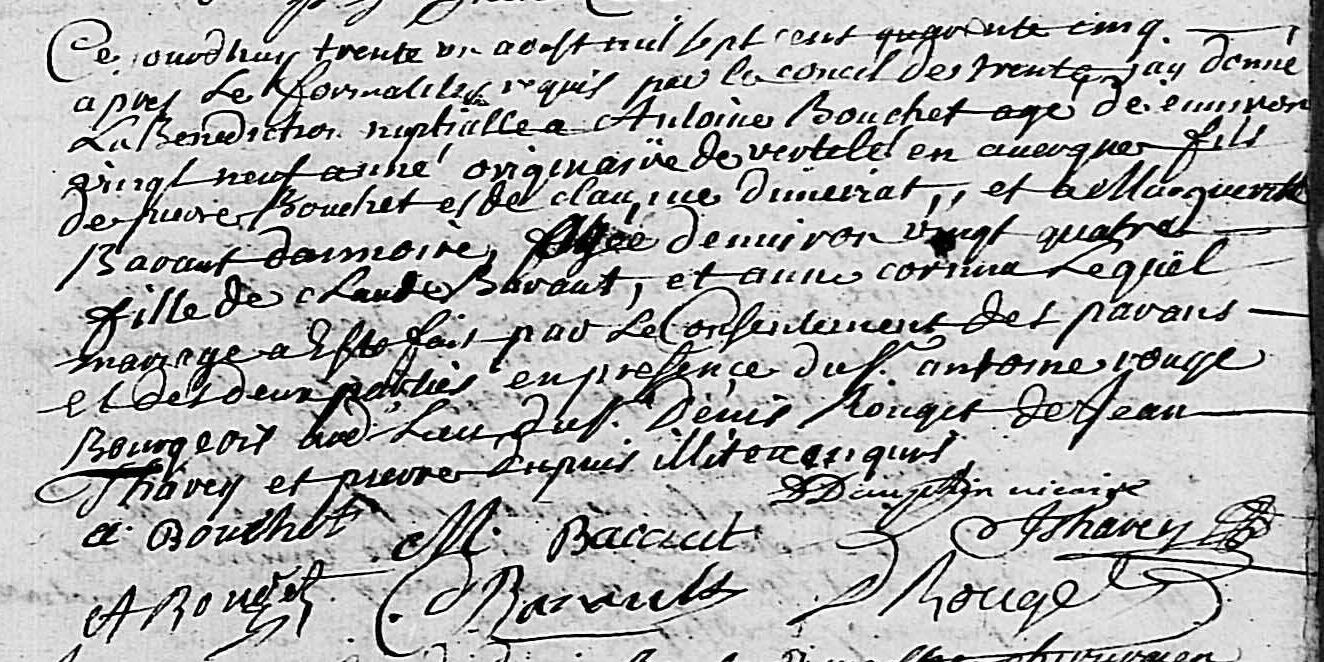 Ce jourdhuy trente un aoust mil sept cent quarente cinq.
apres Les formalites requis par le concil de trente, jay donné
La Benediction nuptialle a Antoine Bouchet agé de enuiron
vingt neuf anné originaire de vertele en auergne fils
de pierre Bouchet et de claudine dimeirat,, et a Marguerite
Baraut damoire, Agée denuiron vingt quatre
fille de claude Baraut, et anne cornua Lequel
mariage a Este fait par Le Consentement des parans
et des deux parties en presence du Sr. antoine rouge
Bourgeois du Lieu, du Sr. Denis Rouget de Jean
Thavey et pierre Dupuis illiterer enquis
Dauphin vicaire
a. Bouchot M. Baraut Jthavey
A Rouget Barault D Rouge